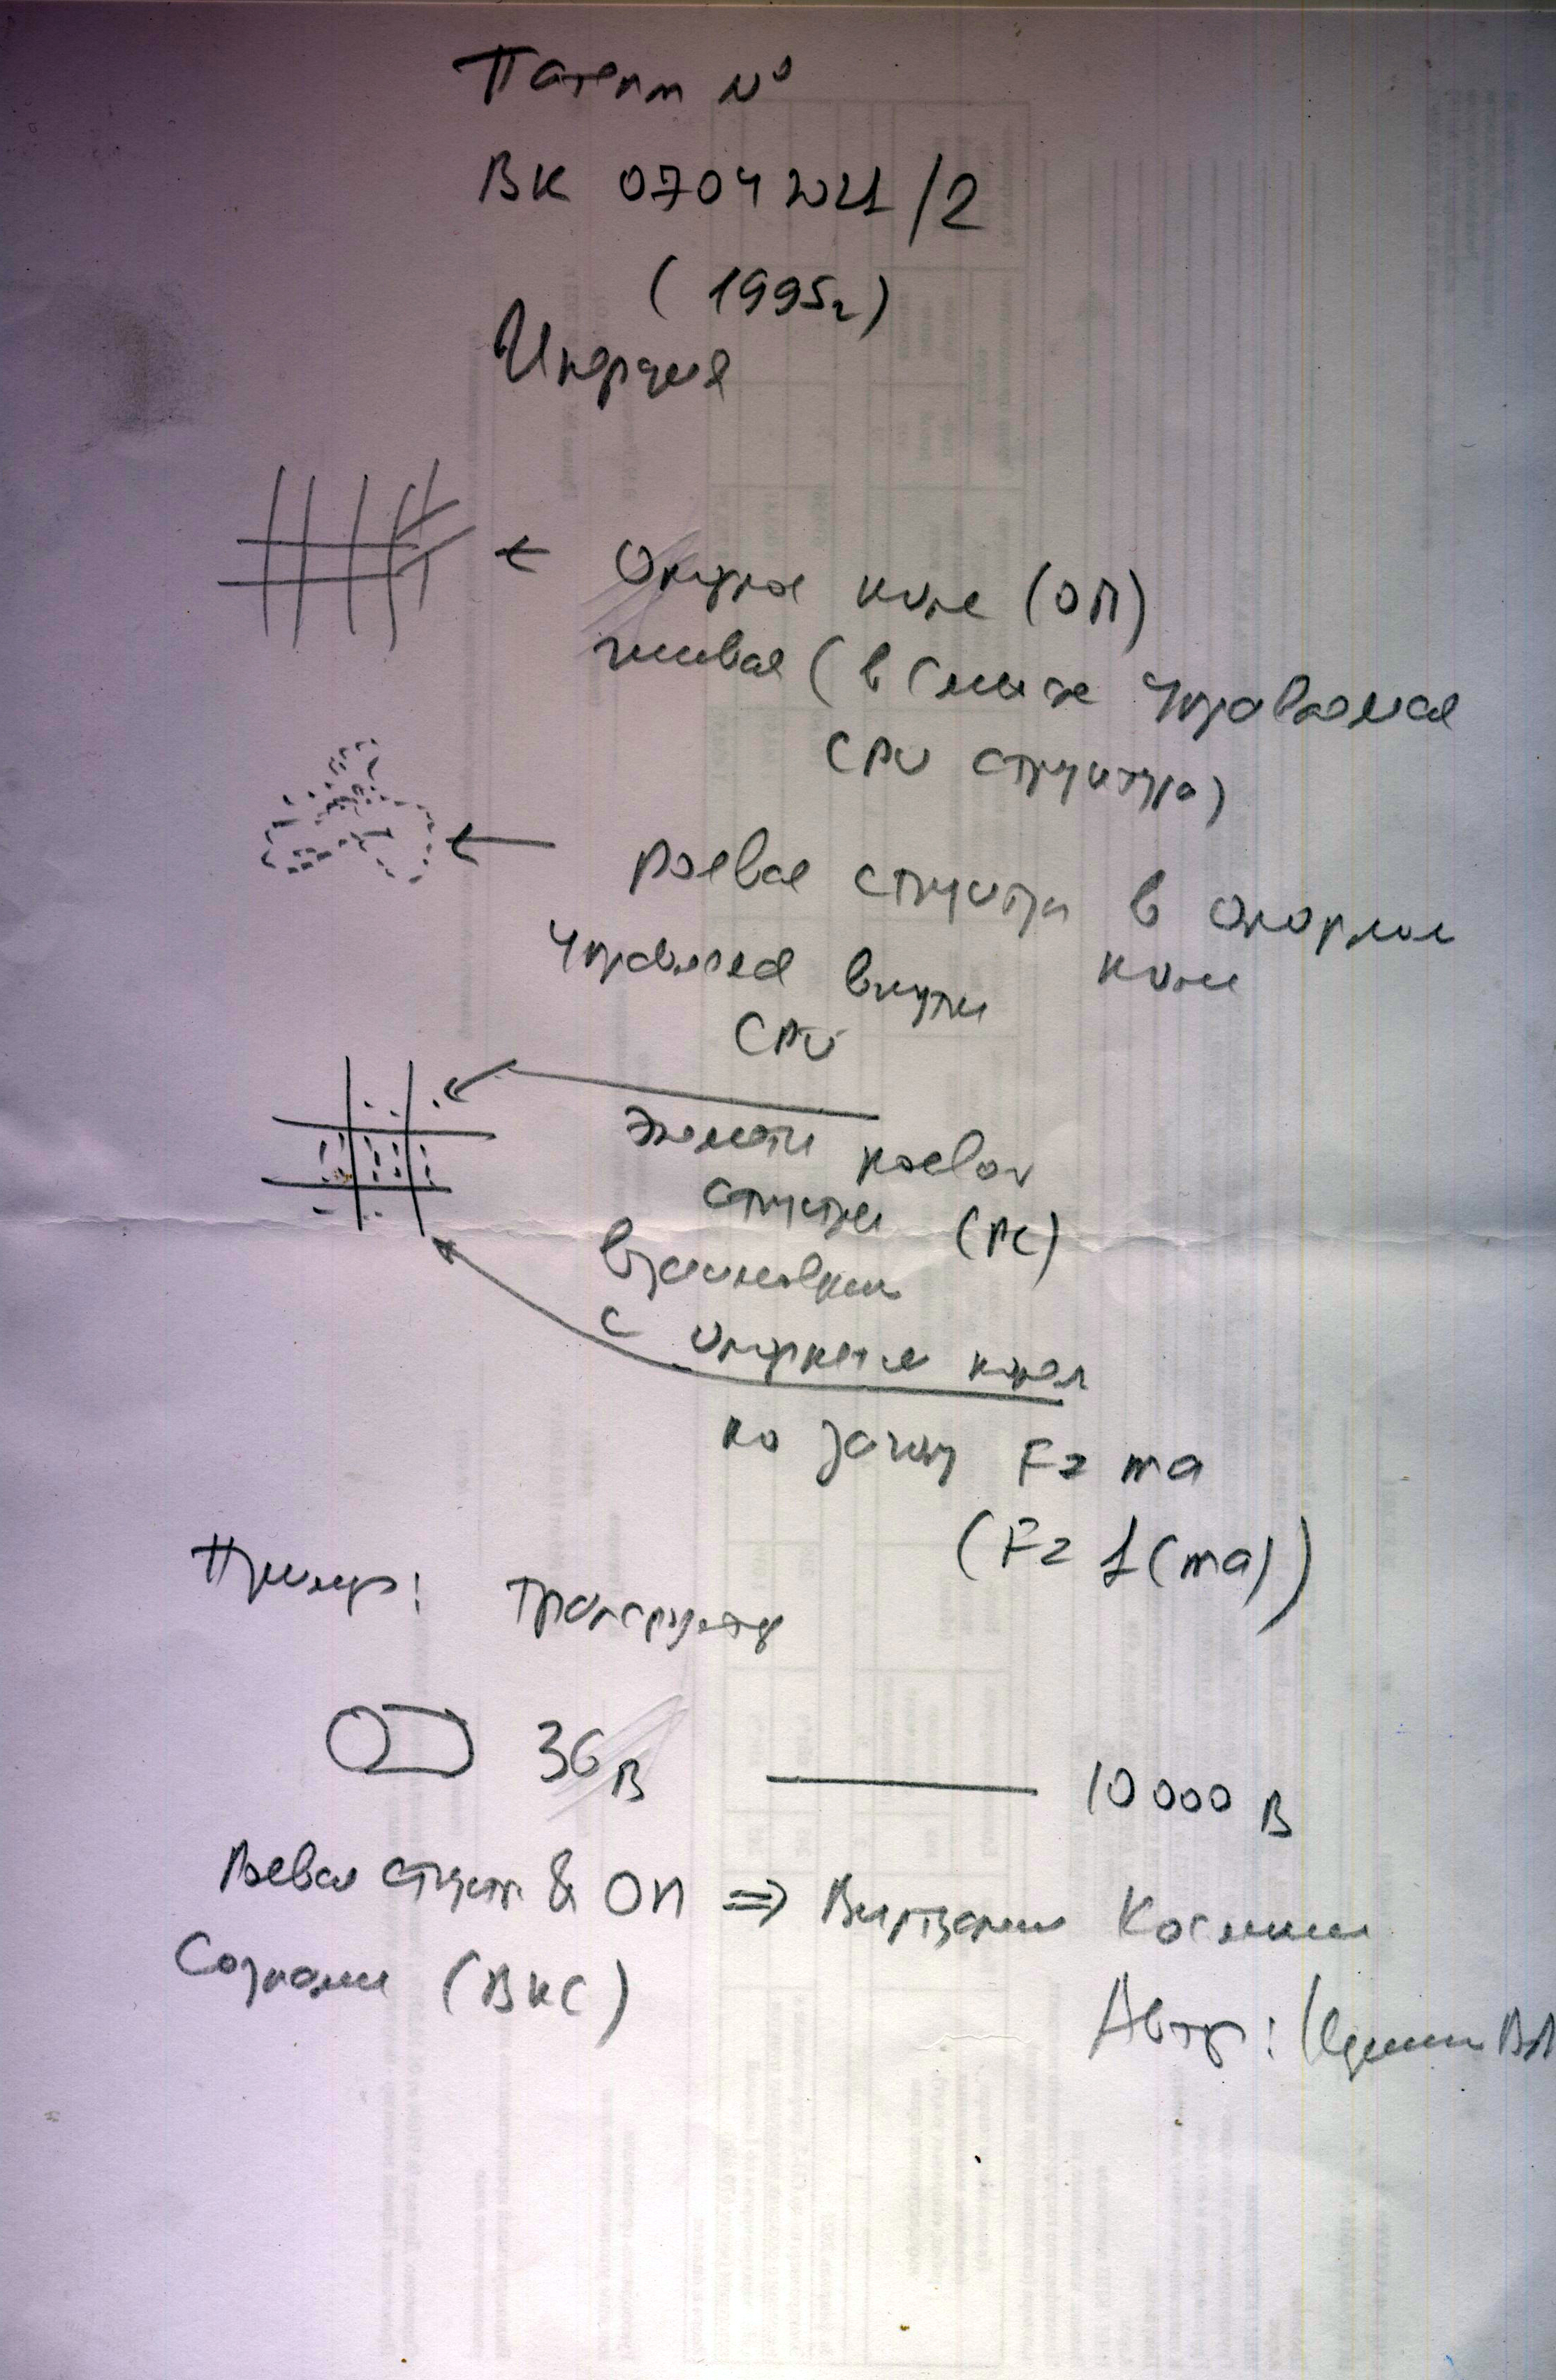 Патент №
ВК 07042021/2
(1995г)
Инерция
← Опорное поле (ОП)
живая (в смысле управляемая
CPU структура)
← Роевая структура в опорном
поле
управляемая внутри
CPU
Элементы роевой
структуры (РС)
взаимодейств
с опорным полем
по закону F = ma
(F = 1(ma))
Пример: Транспунктр
36 В — 10 000 В
Роевая структ & ОП ⇒ Виртуальное Космическое
Сознание (ВКС)
Автор: